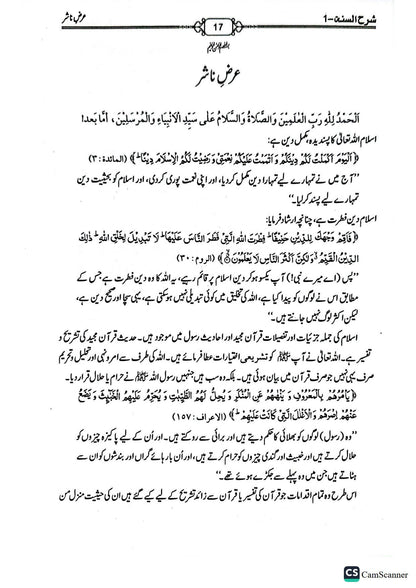 شرح السنة - 1
17
عرض ناشر
عرضِ ناشر
اَلْحَمْدُ لِلّٰهِ رَبِّ الْعٰلَمِيْنَ وَالصَّلَاةُ وَالسَّلَامُ عَلٰى سَيِّدِ الْاَنْبِيَاءِ وَالْمُرْسَلِيْنَ، اَمَّا بَعْد!
اسلام اللہ تعالیٰ کا پسندیدہ، مکمل دین ہے:
﴿اَلْيَوْمَ اَكْمَلْتُ لَكُمْ دِيْنَكُمْ وَ اَتْمَمْتُ عَلَيْكُمْ نِعْمَتِيْ وَ رَضِيْتُ لَكُمُ الْاِسْلَامَ دِيْنًا﴾ (المائدة: ۳)
’’آج میں نے تمہارے لیے تمہارا دین مکمل کر دیا، اور اپنی نعمت پوری کر دی، اور اسلام کو بحیثیت دین
تمہارے لیے پسند کر لیا۔‘‘
اسلام دین فطرت ہے، چنانچہ ارشاد فرمایا:
﴿فَاَقِمْ وَجْهَكَ لِلدِّيْنِ حَنِيْفًا فِطْرَتَ اللّٰهِ الَّتِيْ فَطَرَ النَّاسَ عَلَيْهَا لَا تَبْدِيْلَ لِخَلْقِ اللّٰهِ ذٰلِكَ
الدِّيْنُ الْقَيِّمُ وَلٰكِنَّ اَكْثَرَ النَّاسِ لَا يَعْلَمُوْنَ﴾ (الروم: ۳۰)
’’پس (اے میرے نبی!) آپ یکسو ہو کر دین اسلام پر قائم رہیے، یہ اللہ کا وہ دین فطرت ہے جس کے
مطابق اس نے لوگوں کو پیدا کیا ہے، اللہ کی تخلیق میں کوئی تبدیلی نہیں ہو سکتی ہے، یہی سچا اور صحیح دین ہے،
لیکن اکثر لوگ نہیں جانتے ہیں۔‘‘
اسلام کی جملہ جزئیات اور تفصیلات قرآن مجید اور احادیث رسول میں موجود ہیں۔ حدیث قرآن مجید کی تشریح و
تفسیر ہے۔ اللہ تعالیٰ نے آپ ﷺ کو تشریعی اختیارات عطا فرمائے ہیں۔ اللہ کی طرف سے امر و نہی اور تحلیل و تحریم
صرف یہی نہیں جو صرف قرآن میں بیان ہوئی ہیں۔ بلکہ وہ سب ہیں جنہیں رسول اللہ ﷺ نے حرام یا حلال قرار دیا۔
﴿يَاْمُرُهُمْ بِالْمَعْرُوْفِ وَ يَنْهٰىهُمْ عَنِ الْمُنْكَرِ وَ يُحِلُّ لَهُمُ الطَّيِّبٰتِ وَ يُحَرِّمُ عَلَيْهِمُ الْخَبٰٓىِٕثَ وَ يَضَعُ
عَنْهُمْ اِصْرَهُمْ وَ الْاَغْلٰلَ الَّتِيْ كَانَتْ عَلَيْهِمْ﴾ (الاعراف: ۱۵۷)
’’وہ (رسول) لوگوں کو بھلائی کا حکم دیتے ہیں اور برائی سے روکتے ہیں۔ اور اُن کے لیے پاکیزہ چیزوں کو
حلال کرتے ہیں اور خبیث اور گندی چیزوں کو حرام کرتے ہیں، اور اُن بار ہائے گراں اور بندشوں کو ان سے
ہٹاتے ہیں جن میں وہ پہلے سے جکڑے ہوئے تھے۔‘‘
اس طرح وہ تمام اقدامات جو قرآن کی تفسیر یا قرآن سے زائد تشریح کے لیے کیے گئے ہیں ان کی حیثیت منزل من
CS CamScanner